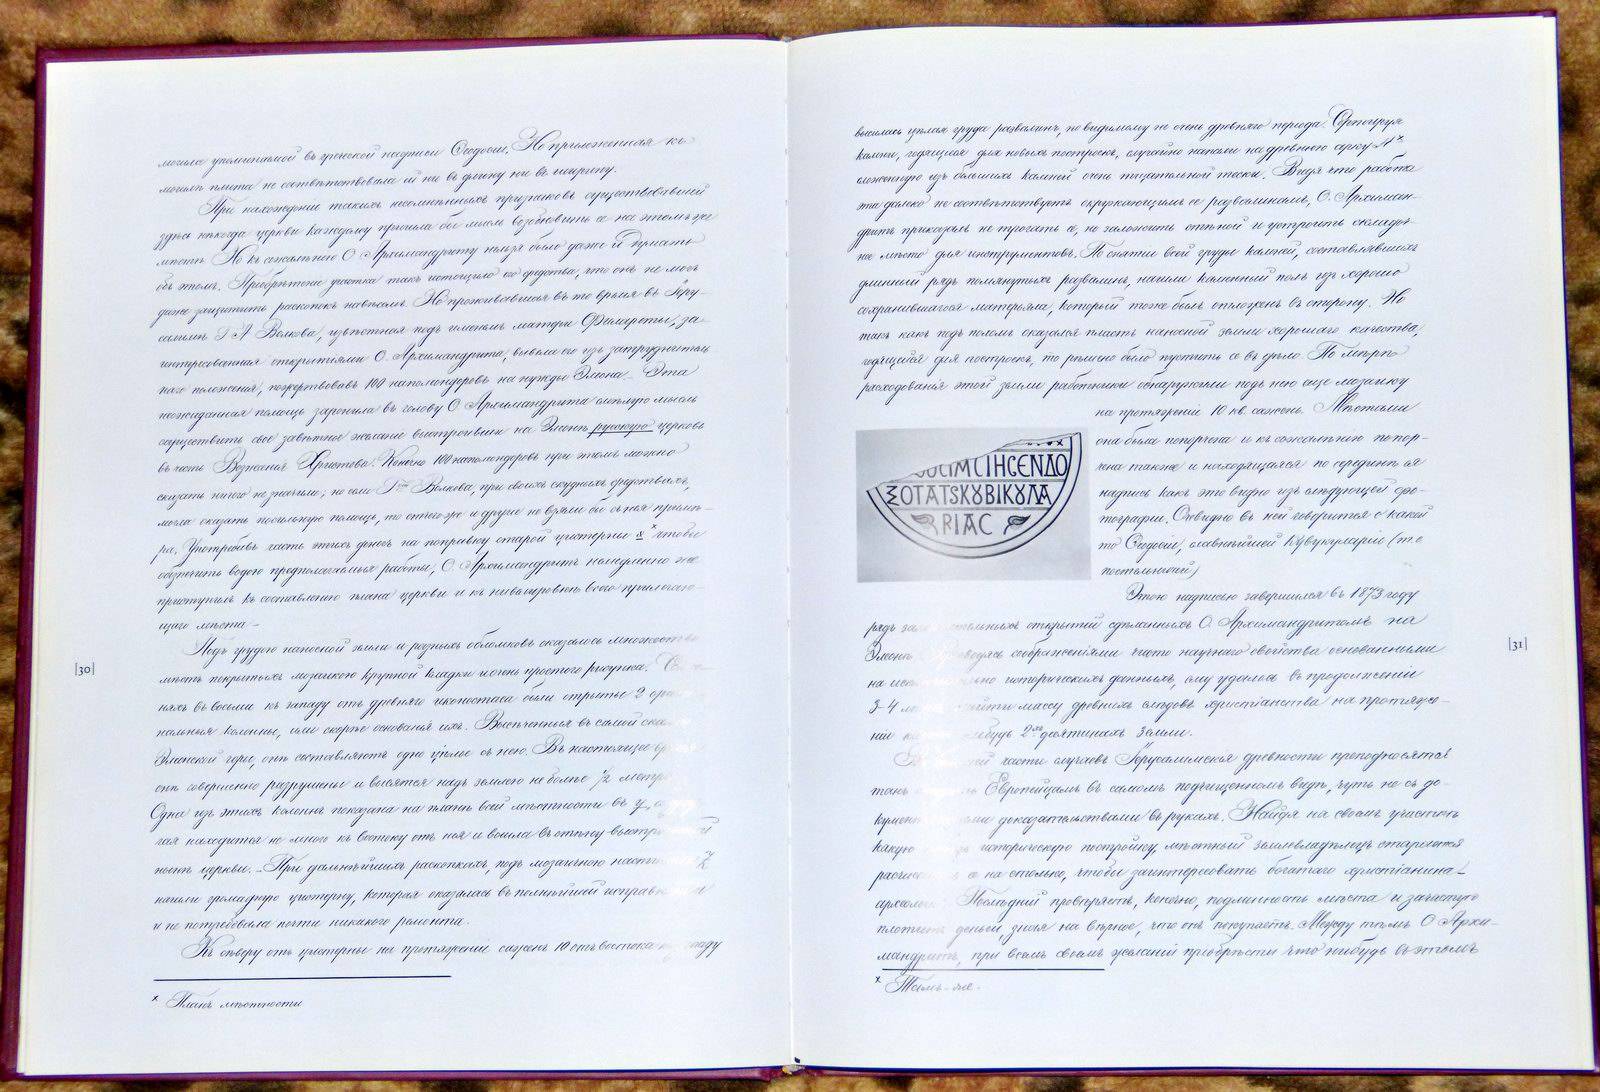 могила упоминаемой въ греческой надписи Ѳеодосіи. Но приложенная къ
могилѣ плита не соотвѣтствовала ей ни въ длину ни въ ширину.
При нахожденіи такихъ несомнѣнныхъ признаковъ существовавшей
здѣсь нѣкогда церкви каждому пришла бы мысль возобновить ее на этомъ же
мѣстѣ. Но къ сожалѣнію О. Архимандриту нельзя было даже и думать
объ этомъ. Пробрѣтеніе участка такъ истощило его средства, что онъ не могъ
даже защитить раскопокъ навѣсомъ. Но проживавшая въ то время въ Іеру-
салимѣ Г А Волкова, извѣстная подъ именемъ матери Филареты, за-
интересованная открытіями О. Архимандрита, вывела его изъ затруднитель
наго положенія, пожертвовавъ 100 наполеондоровъ на нужды Элеона. Эта
неожиданная помощь заронила въ голову О. Архимандрита смѣлую мысль
осуществить свое завѣтное желаніе выстроивши на Элеонѣ русскую церковь
въ честь Вознесенія Христова. Конечно 100 наполеондоровъ при этомъ можно
сказать ничего не значило; но если Г-жа Волкова, при своихъ скудныхъ средствахъ,
могла оказать посильную помощь, то отчего же и другіе не взяли бы съ нея примѣ-
ра. Употребивъ часть этихъ денегъ на поправку старой цистерны x чтобы
облегчить водою предполагаемыя работы, О. Архимандритъ немедленно же
приступилъ къ составленію плана церкви и къ нивелировкѣ всего прилегаю-
щаго мѣста –
Подъ грудою наносной земли и разныхъ обломковъ оказалось множество
мѣстъ покрытыхъ мозаикою крупной кладки и очень простого рисунка.
няхъ въ восьми къ западу отъ древняго иконостаса были открыты 2
нальныя колонны, или скорѣе основанія ихъ. Высѣченныя въ самой
Элеонской горы, онѣ составляютъ одно цѣлое съ нею. Въ настоящее время
онѣ совершенно разрушены и высятся надъ землею не болѣе ½
Одна изъ этихъ колоннъ показана на планѣ всей мѣстности въ
гая находится не много къ востоку отъ нея и вошла въ стѣну
ноенъ церкви. – При дальнѣйшихъ раскопкахъ, подъ мозаичною
нашли громадную цистерну, которая оказалась въ полнѣйшей исправности
и не потребовала почти никакого ремонта.
Къ сѣверу отъ цистерны на протяженіи сажень 10 съ востока на западу
x Планъ мѣстности
|30|
высилась цѣлая груда развалинъ, по видимому не очень древняго періода. Сортируя
камни, годящіеся для новыхъ построекъ, случайно напали на древнюю x
сложенную изъ большихъ камней очень тщательной тески. Видя что работа
эта далеко не соотвѣтствуетъ окружающимъ ее развалинамъ, О. Архиман-
дритъ приказалъ не трогать а, но заложить стѣной и устроить складоч-
ное мѣсто для инструментовъ. По снятіи всей груды камней, составлявшихъ
длинный рядъ помянутыхъ развалинъ, нашли каменный полъ изъ хорошо
сохранившагося матерьяла, который тоже былъ отложенъ въ сторону. Но
такъ какъ подъ поломъ оказался пластъ наносной земли хорошаго качества,
годящейся для построекъ, то рѣшено было пустить ее въ дѣло. По мѣрѣ
расходованія этой земли работники обнаружили подъ нею еще мозаику
на протяженіи 10 кв. сажень. Мѣстами
она была попорчена и къ сожалѣнію попор-
чена также и находящаяся по серединѣ ея
надпись какъ это видно изъ слѣдующей фо-
тографіи. Очевидно въ ней говорится о какой
то Ѳеодосіи, славнѣйшей кувукуларіи (т е
постельничей)
CIMCIHCENDO
ΣOTATSKȣBIKȣΛA
RIAC
Этою надписью завершился въ 1873 году
рядъ замѣчательныхъ открытій сдѣланныхъ О. Архимандритомъ на
Элеонѣ. соображеніями чисто научнаго свойства основанными
на историческихъ данныхъ, ему удалось въ продолженіи
3–4 лѣтъ найти массу древнихъ слѣдовъ христіанства на протяже-
ніи нибудь 2хъ десятинахъ земли.
части случаевъ Іерусалимскія древности преподносятся
такъ Европейцамъ въ самомъ подчищенномъ видѣ, чуть не съ до-
кументальными доказательствами въ рукахъ. Найдя на своемъ участкѣ
какую историческую постройку, мѣстный землевладѣлецъ старается
расчистить ее на столько, чтобы заинтересовать богатаго христіанина –
археолога. Послѣдній провѣряетъ, конечно, подлинность мѣста и зачастую
платитъ деньги, зная на вѣрное, что онъ покупаетъ. Между тѣмъ О Архи-
мандритъ, при всемъ своемъ желаніи пріобрѣсти что нибудь въ этомъ
x Тамъ-же.
|31|